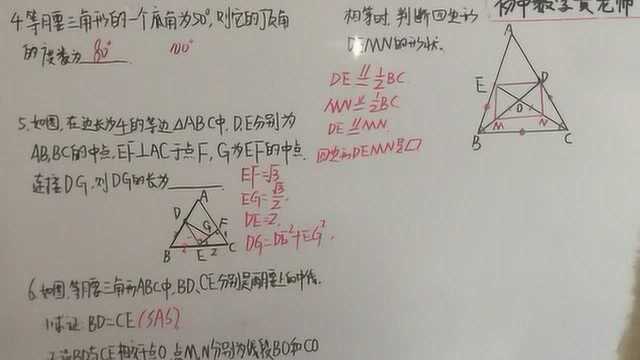 4.等腰三角形的一个底角为50°,则它的顶角
的度数为 80°
100°
5.如图,在边长为4的等边△ABC中,D、E分别为
AB,BC的中点,EF⊥AC于点F,G为EF的中点
连接DG,则DG的长为
EF=√3
EG=√3/2
DE=2.
DG=DE²+EG²
A
D
G
F
B
2
E
2
C
6.如图,等腰三角形ABC中,BD、CE分别是两腰上的中线.
1.求证 BD=CE (SAS)
BD与CE相交于点O,点M,N分别为线段BO和CO
初中数学黄老师
相等时,判断四边形
DEMN的形状.
DE∥=½BC
MN∥=½BC
DE∥=MN
四边形DEMN是□
A
E
D
O
M
N
B
C